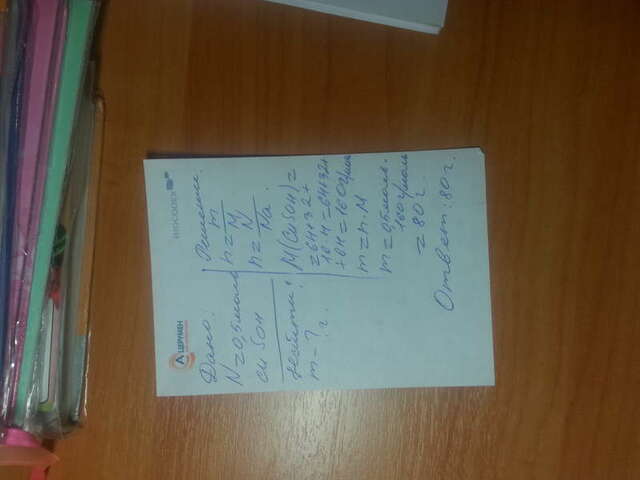 АЦЕРУМЕН
Дано:
N = 0,5 моль
CuSOH
Найти:
m - ?
г.
Решение.
n = m/M
n = N/Na.
M(CuSOH) =
= 64 + 32 +
16·4 = 64+32+
+64 = 160 г/моль
m = n·M
m = 0,5 моль·
160 г/моль
= 80 г.
Ответ: 80 г.